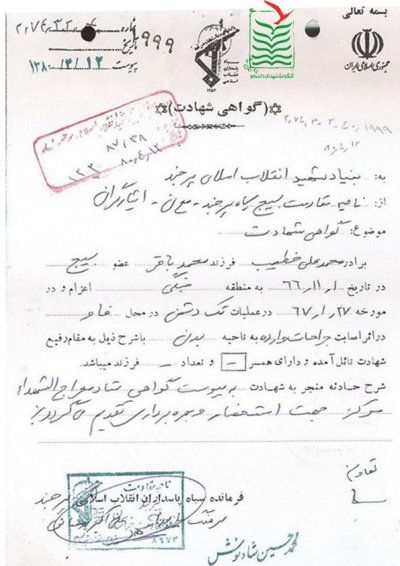 بسمه تعالی
جمهوری اسلامی ایران
سپاه پاسداران انقلاب اسلامی
شماره
۱۹۹۹
تاریخ
پیوست
۱۳۸۰/۴/۱۲
(گواهی شهادت)
به: بنیاد شهید انقلاب اسلامی بیرجند
از: ناحیه مقاومت بسیج سپاه بیرجند - معاون - ایثارگران
موضوع: گواهی شهادت
برادر محمد علی خطیب فرزند محمد باقر عضو بسیج
در تاریخ ۶۶/۱۱/۱ به منطقه جنگی اعزام و در
مورخه ۶۷/۱/۲۷ در عملیات تک دشمن در محل فاو
در اثر اصابت جراحات وارده به ناحیه بدن باشرح ذیل به مقام رفیع
شهادت نائل آمده و دارای همسر - و تعداد - فرزند میباشد.
شرح حادثه منجر به شهادت به پیوست گواهی ستاد معراج الشهداء
مرکز جهت استحضار و بهره برداری تقدیم می گردد
تعاون
فرمانده سپاه پاسداران انقلاب اسلامی بیرجند
محمد حسین شادنوش